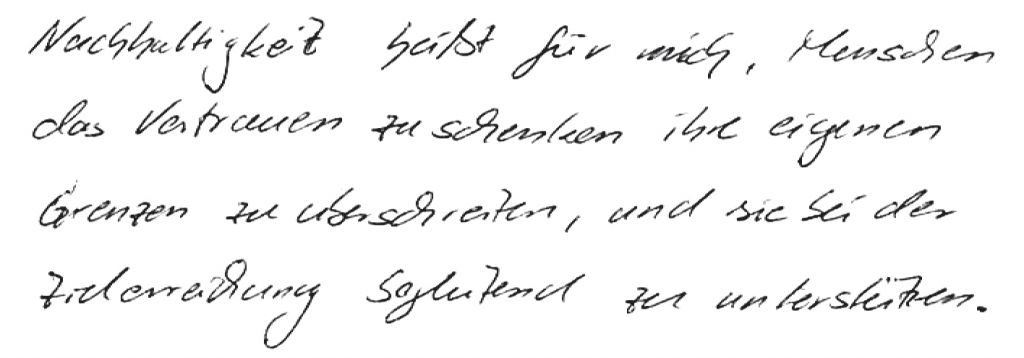 Nachhaltigkeit heißt für mich, Menschen
das Vertrauen zu schenken ihre eigenen
Grenzen zu überschreiten, und sie bei der
Zielerreichung begleitend zu unterstützen.